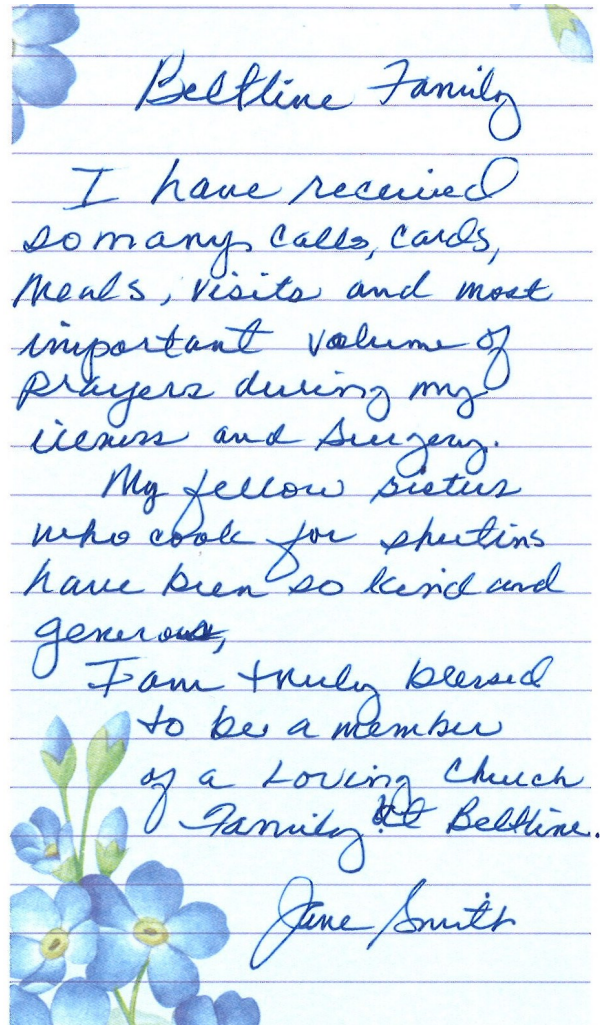 Beltline Family
I have received
so many calls, cards,
meals, visits and most
important volume of
prayers during my
illness and surgery.
My fellow sisters
who cook for shutins
have been so kind and
generous,
I am truly blessed
to be a member
of a Loving Church
Family at Beltline.
Jane Smith